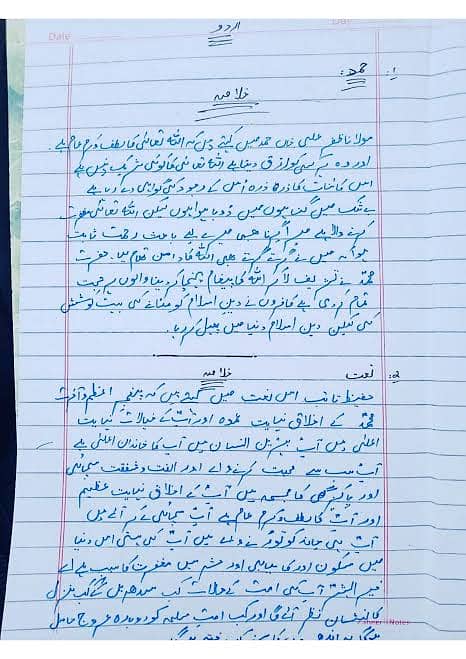 Date
اردو
۱: حمد:
خلاصہ
مولانا ظفر علی خاں حمد میں کہتے ہیں کہ اللہ تعالیٰ کا لطف و کرم عام ہے
اور وہ ہر کسی کو رزق دیتا ہے اللہ تعالیٰ کا کوئی شریک نہیں ہے
اس کائنات کا ذرہ ذرہ اس کے وجود کی گواہی دے رہا ہے
بے شک میں گناہوں میں ڈوبا ہوا ہوں لیکن اللہ تعالیٰ مغفرت
کرنے والا ہے میرا گرنا بھی میرے لیے باعث رحمت ثابت
ہوا کہ میں نے گرتے گرتے بھی اللہ کا دامن تھام لیا۔ حضرت
محمدؐ نے تشریف لا کر اللہ کا پیغام پہنچا کر دنیا والوں پر حجت
تمام کر دی ہے کافروں نے دین اسلام کو مٹانے کی بہت کوشش
کی لیکن دین اسلام دنیا میں پھیل کر رہا۔
۲: نعت
خلاصہ
حفیظ تائب اس نعت میں کہتے ہیں کہ پیغمبر اعظم و آخر
محمدؐ کے اخلاق نہایت عمدہ اور آپؐ کے خیالات نہایت
اعلیٰ ہیں آپؐ بہترین انسان ہیں آپ کا خاندان اعلیٰ ہے
آپؐ سب سے محبت کرنے والے اور الفت و شفقت سچائی
اور پاکیزگی کا مجسمہ ہیں آپؐ کے اخلاق نہایت عظیم
اور آپؐ کا لطف و کرم عام ہے آپؐ سچائی کے
آپؐ ہی چاند کو توڑنے والے ہیں آپؐ کی ہستی اس دنیا
میں سکون اور کامیابی اور حشر میں مغفرت کا سبب ہے اے
خیر البشر آپؐ کی امت کے حالات کب سدھریں گے کب منزل
کا نشان نظر آئے گا اور کب امت مسلمہ کو دوبارہ عروج حاصل
Notes